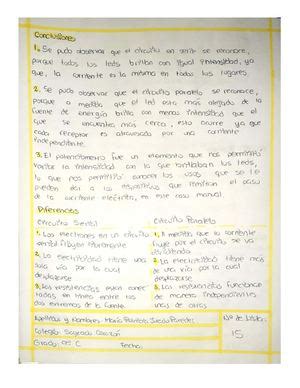 Conclusiones
1. Se pudo observar que el circuito en serie se reconoce,
porque todos los leds brillan con igual intensidad, ya
que, la corriente es la misma en todos los lugares.
2. Se pudo observar que el circuito paralelo se reconoce,
porque a medida que el led esta más alejado de la
fuente de energía brilla con menos intensidad que el
que se encuentra más cerca, esto ocurre ya que
cada receptor es atravesado por una corriente
independiente.
3. El potenciometro fue un elemento que nos permitió
variar la intensidad con la que brillaban los leds,
lo que nos permitió conocer los usos que se le
pueden dar a los dispositivos que limitan el paso
de la corriente eléctrica, en este caso manual.
Diferencias
Circuito Serial
Circuito Paralelo
1. Los electrones en un circuito
serial fluyen libremente
1. A medida que la corriente
fluye por el circuito se va
dividiendo
2. La electricidad tiene una
sola vía por la cual
desplazarse
2. La electricidad tiene más
de una vía por la cual
desplazarse
3. Las resistencias están conec
tadas en línea entre los
dos extremos de la fuente.
3. Las resistencias funcionan
de manera independientes
unas de otras
Apellidos y Nombres: María Paredes
Nº de Lista:
15
Colegio: Sagrado Corazón
Grado: C
Fecha: